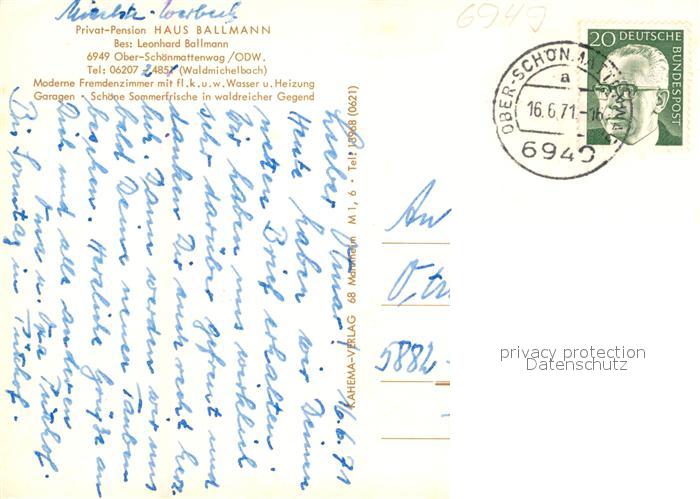 6949
Privat-Pension HAUS BALLMANN
Bes: Leonhard Ballmann
6949 Ober-Schönmattenwag /ODW.
Tel: 06207 / 2485 (Waldmichelbach)
Moderne Fremdenzimmer mit fl. k. u. w. Wasser u. Heizung
Garagen · Schöne Sommerfrische in waldreicher Gegend
16.6.71
Lieber Otmar!
Heute haben wir Deinen
netten Brief erhalten.
Wir haben uns wirklich
sehr darüber gefreut und
danken Dir auch recht herz-
lich. Dann werden wir uns
bald Deine neuen Tauben
besehen. Herzliche Grüße an
Dich und alle anderen
Oma u. Opa
Bis Sonntag in
KAHEMA-VERLAG 68 Mannheim M 1, 6 · Tel: 13968 (0621)
20 DEUTSCHE BUNDESPOST
OBER-SCHÖNMATTENWAG
a
16.6.71.-16
6949
An
5882
privacy protection
Datenschutz